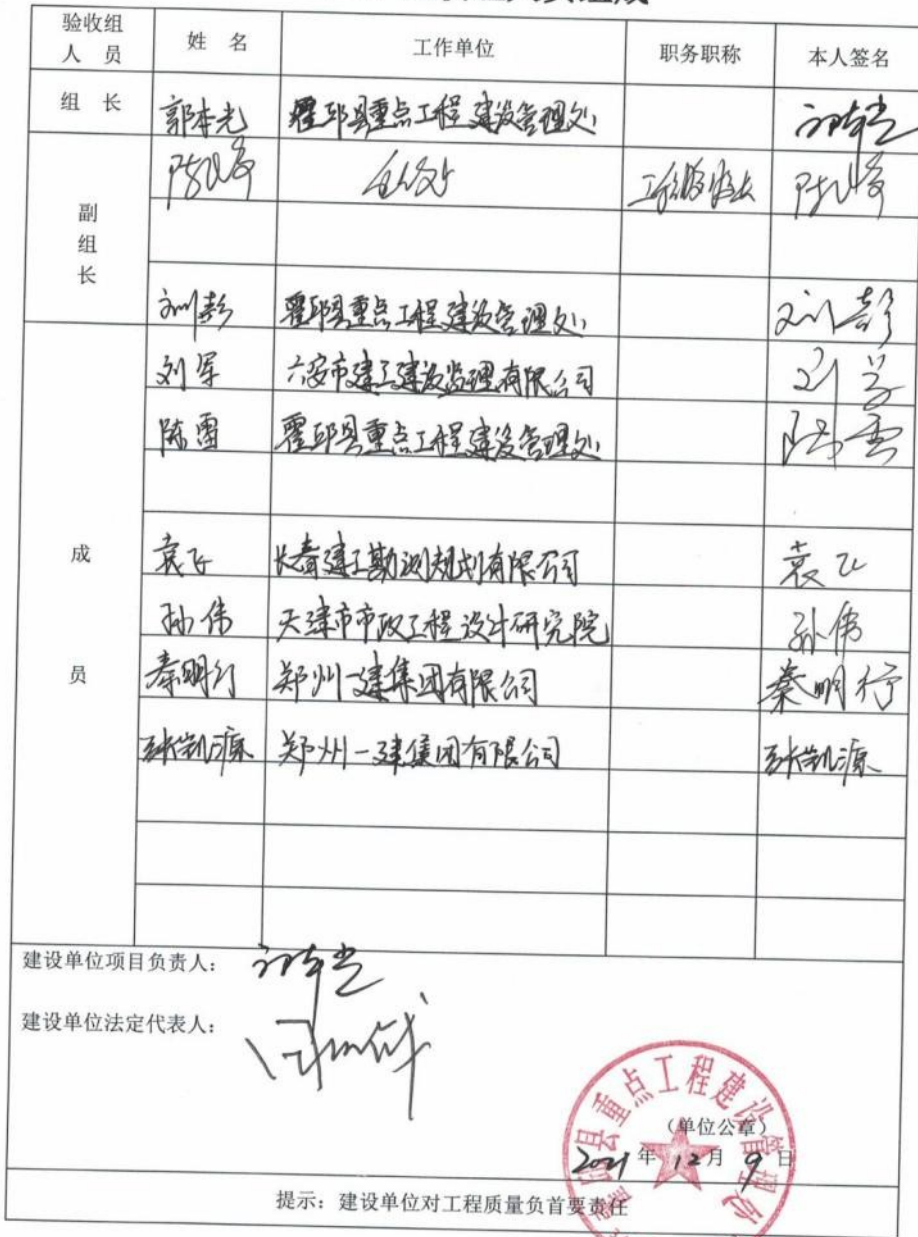 验收组人员 姓 名 工作单位 职务职称 本人签名
组 长 郭本光 霍邱县重点工程建设管理处
副组长
刘彭 霍邱县重点工程建设管理处 刘彭
刘军 六安市建工建设监理有限公司 刘军
陈雷 霍邱县重点工程建设管理处 陈雷
成员
袁飞 长春建工勘测规划有限公司 袁飞
孙伟 天津市市政工程设计研究院 孙伟
秦明行 郑州一建集团有限公司 秦明行
张凯源 郑州一建集团有限公司 张凯源
建设单位项目负责人：
建设单位法定代表人：
县重点工程建设管理处
（单位公章）
2021年12月9日
提示：建设单位对工程质量负首要责任